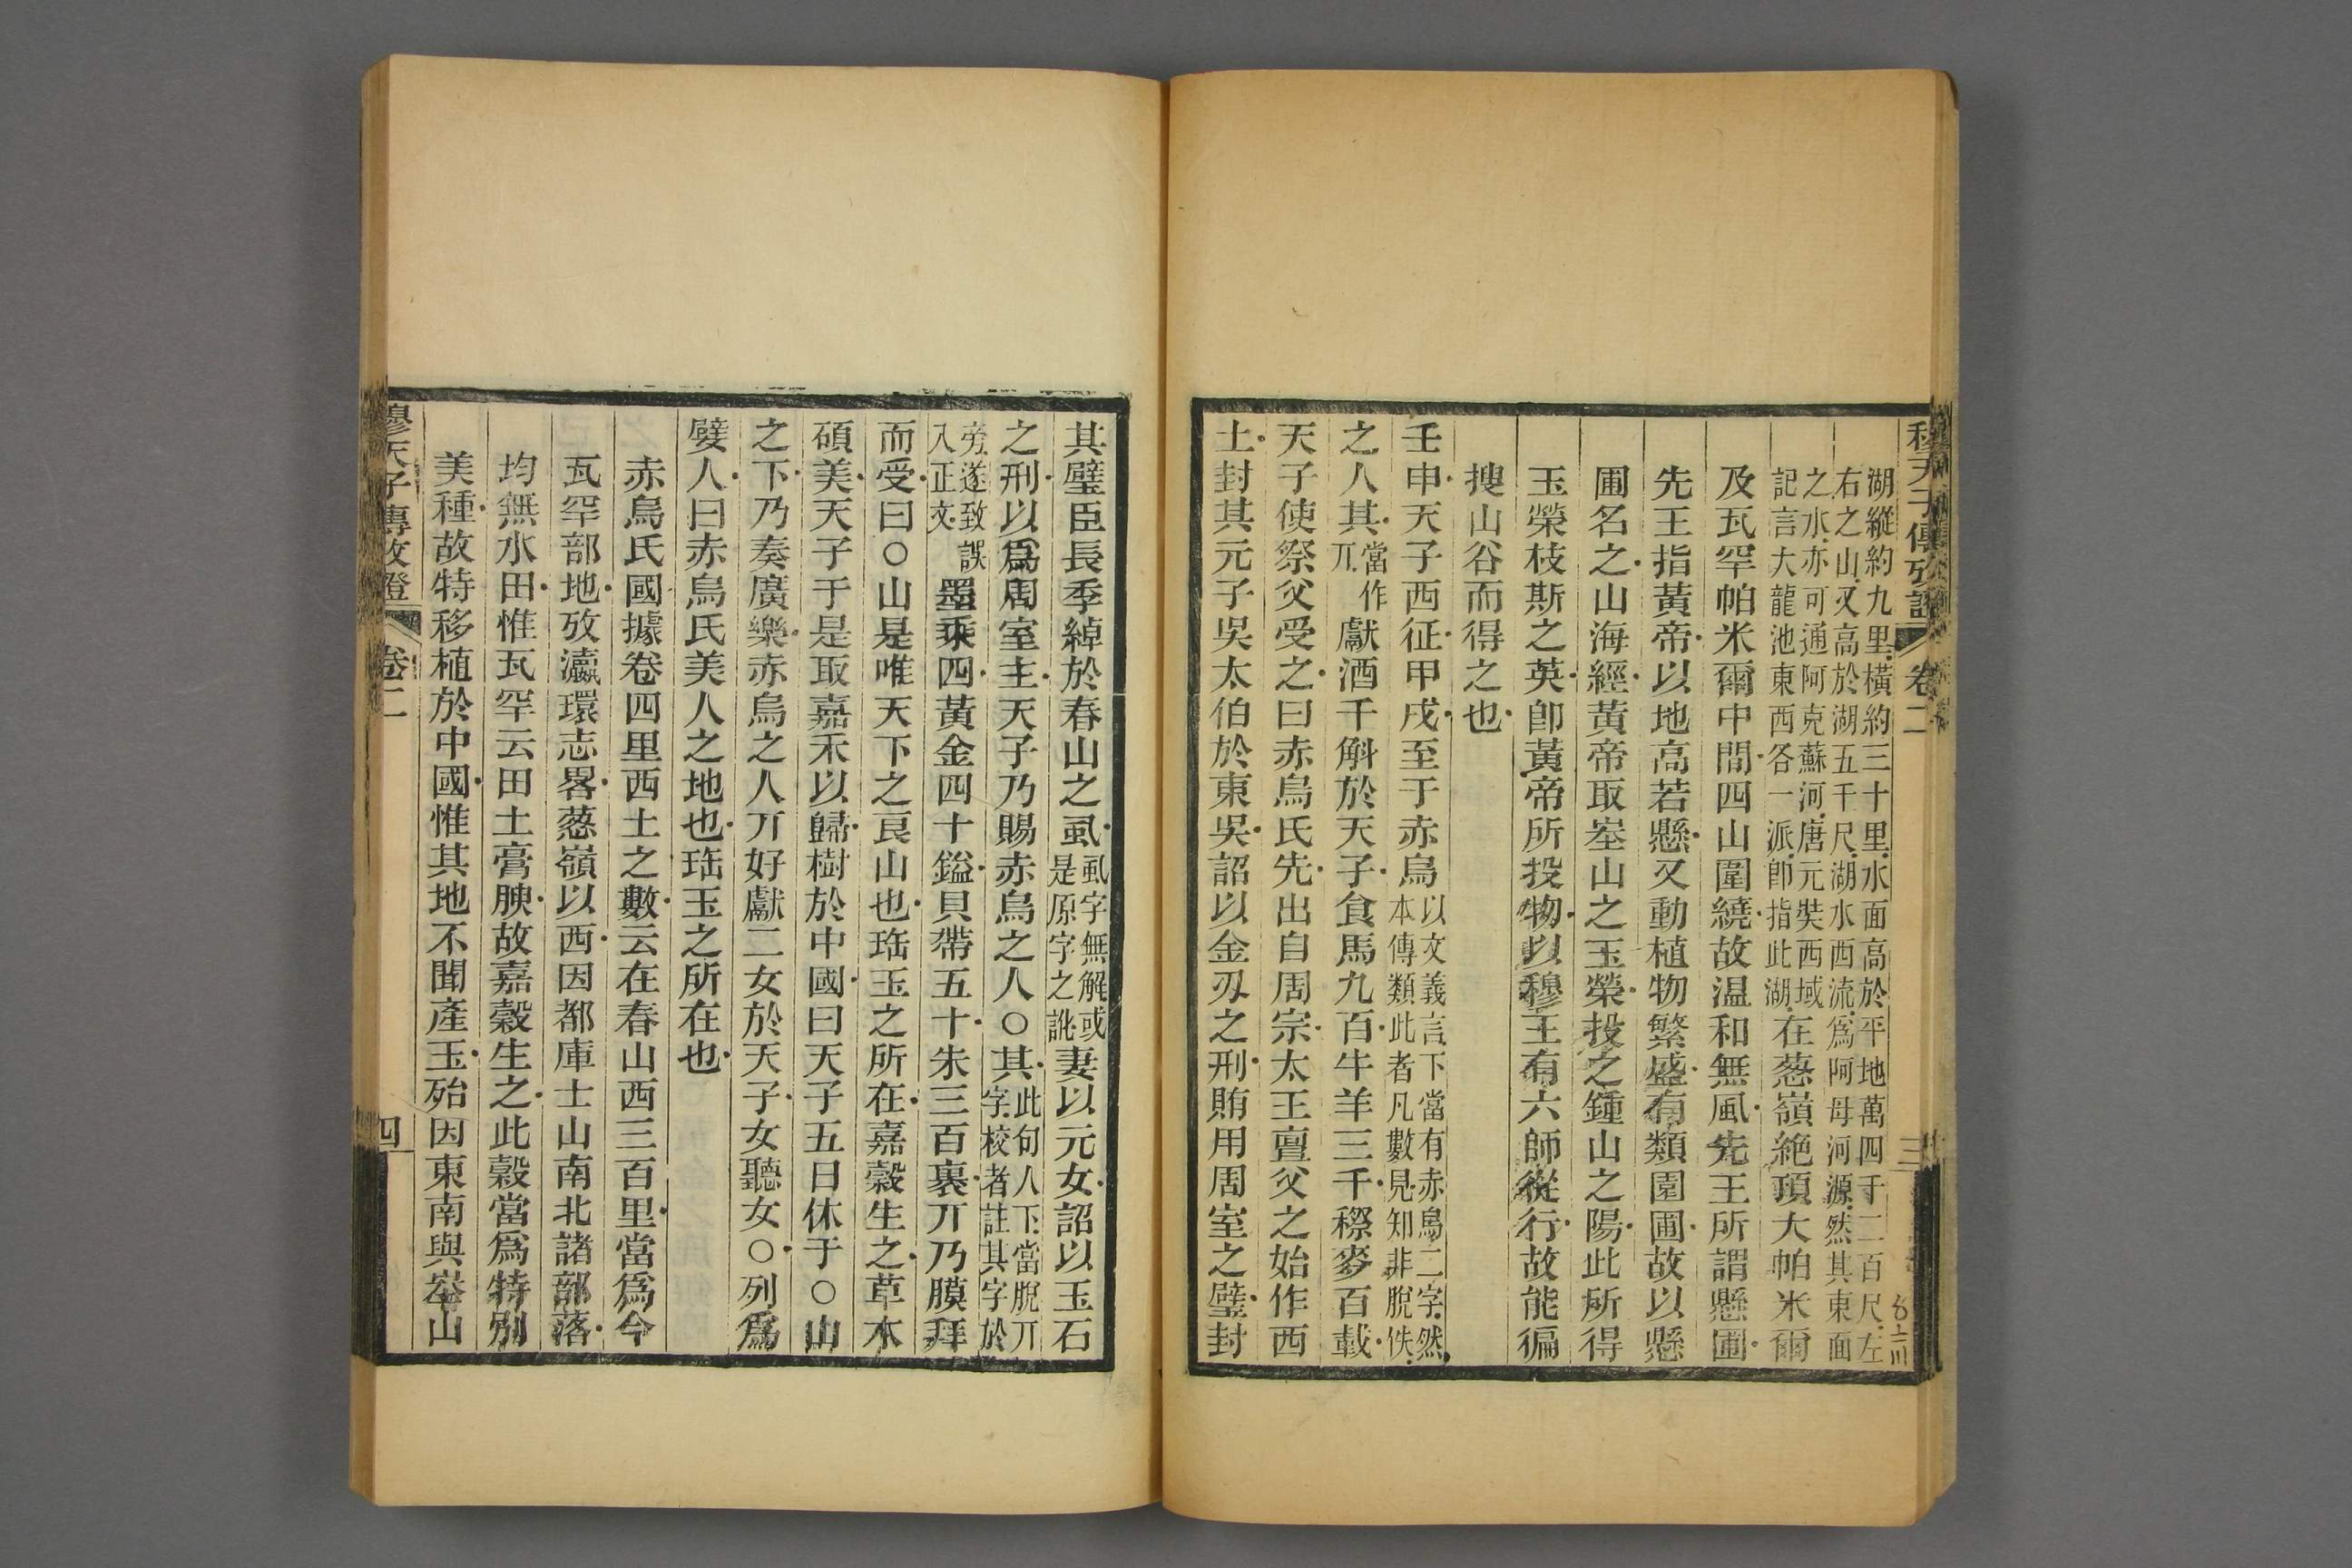 穆天子傳攷證 卷二 三
湖縱約九里橫約三十里水面高於平地萬四千二百尺左
右之山又高於湖五千尺湖水西流爲阿母河源然其東面
之水亦可通阿克蘇河唐元奘西域
記言大龍池東西各一派卽指此湖在葱嶺絶項大帕米爾
及瓦罕帕米爾中間四山圍繞故温和無風先王所謂懸圃
先王指黃帝以地高若懸又動植物繁盛有類園圃故以懸
圃名之山海經黃帝取峚山之玉榮投之鍾山之陽此所得
玉榮枝斯之英卽黃帝所投物以穆王有六師從行故能徧
搜山谷而得之也
壬申天子西征甲戌至于赤烏以文義言下當有赤烏二字然
本傳類此者凡數見知非脫佚
之人其當作
丌獻酒千斛於天子食馬九百牛羊三千穄麥百載
天子使祭父受之曰赤烏氏先出自周宗太王亶父之始作西
土封其元子吳太伯於東吳詔以金刃之刑賄用周室之璧封
其璧臣長季綽於春山之虱虱字無解或
是原字之訛妻以元女詔以玉石
之刑以爲周室主天子乃賜赤烏之人○其此句人下當脫丌
字校者註其字於
旁遂致誤
入正文墨乘四黃金四十鎰貝帶五十朱三百裹丌乃膜拜
而受曰○山是唯天下之良山也珤玉之所在嘉穀生之草木
碩美天子于是取嘉禾以歸樹於中國曰天子五日休于○山
之下乃奏廣樂赤烏之人丌好獻二女於天子女聽女○列爲
嬖人曰赤烏氏美人之地也珤玉之所在也
赤烏氏國據卷四里西土之數云在春山西三百里當爲今
瓦罕部地攷瀛環志畧葱嶺以西因都庫士山南北諸部落
均無水田惟瓦罕云田土膏腴故嘉穀生之此穀當爲特別
美種故特移植於中國惟其地不聞產玉殆因東南與峚山
穆天子傳攷證 卷二 四